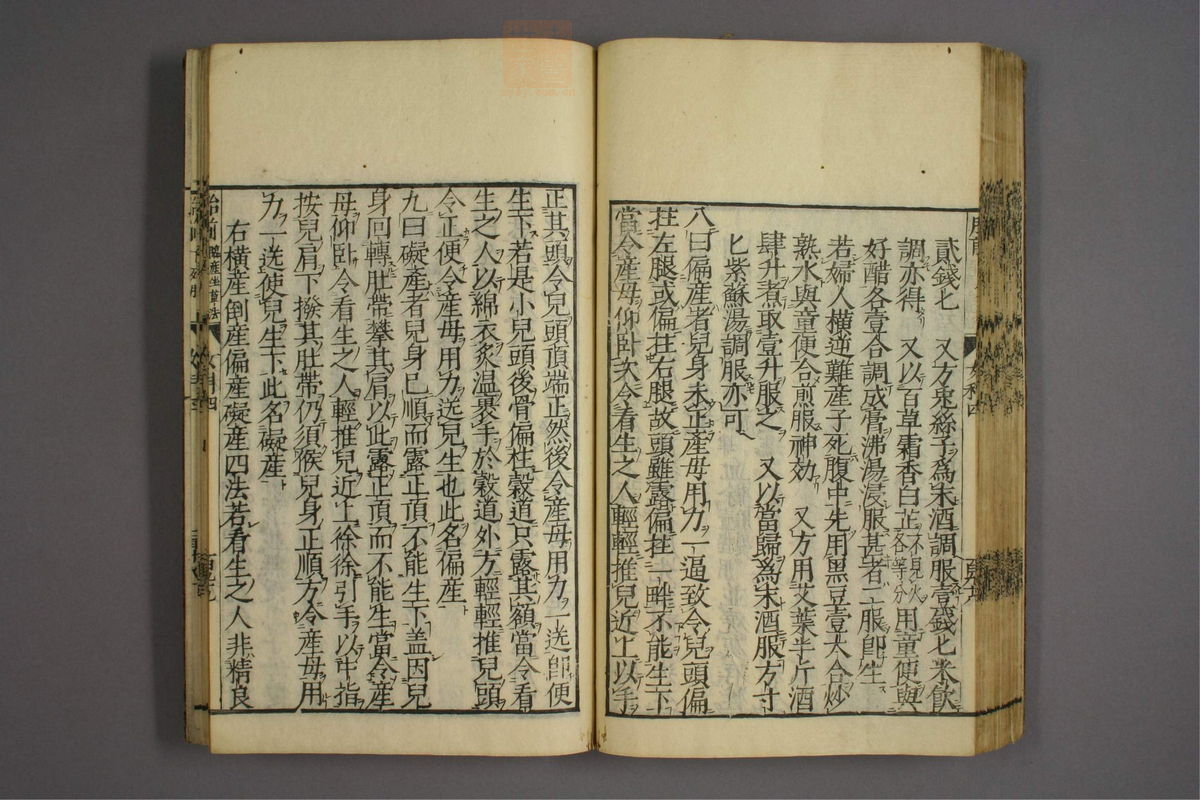 貳錢匕　又方兔絲子爲末酒調服壹錢匕米飲
調亦得　又以百草霜香白芷不見火各等分用童便與
好醋各壹合調成膏沸湯浸服甚者二服即生
若婦人橫逆難產子死腹中先用黑豆壹大合炒
熟水與童便合煎服神効　又方用艾葉半斤酒
肆升煮取壹升服之　又以當歸爲末酒服方寸
匕紫蘇湯調服亦可
八曰偏產者兒身未正產母用力一逼致令兒頭偏
拄左腿或偏拄右腿故頭雖露偏拄一畔不能生下
當令產母仰卧次令看生之人輕輕推兒近上以手
正其頭令兒頭頂端正然後令產母用力一送即便
生下若是小兒頭後骨偏柱穀道只露其額當令看
生之人以綿衣炙温裹手於穀道外方輕輕推兒頭
令正便令產母用力送兒生也此名偏產
九曰礙產者兒身已順而露正頂不能生下盖因兒
身回轉肚帶攀其肩以此露正頂而不能生當令產
母仰卧令看生之人輕推兒近上徐徐引手以中指
按兒肩下撥其肚帶仍須候兒身正順方令產母用
力一送使兒生下此名礙產
右橫產倒產偏產礙產四法若看生之人非精良
胎前　臨產坐草法